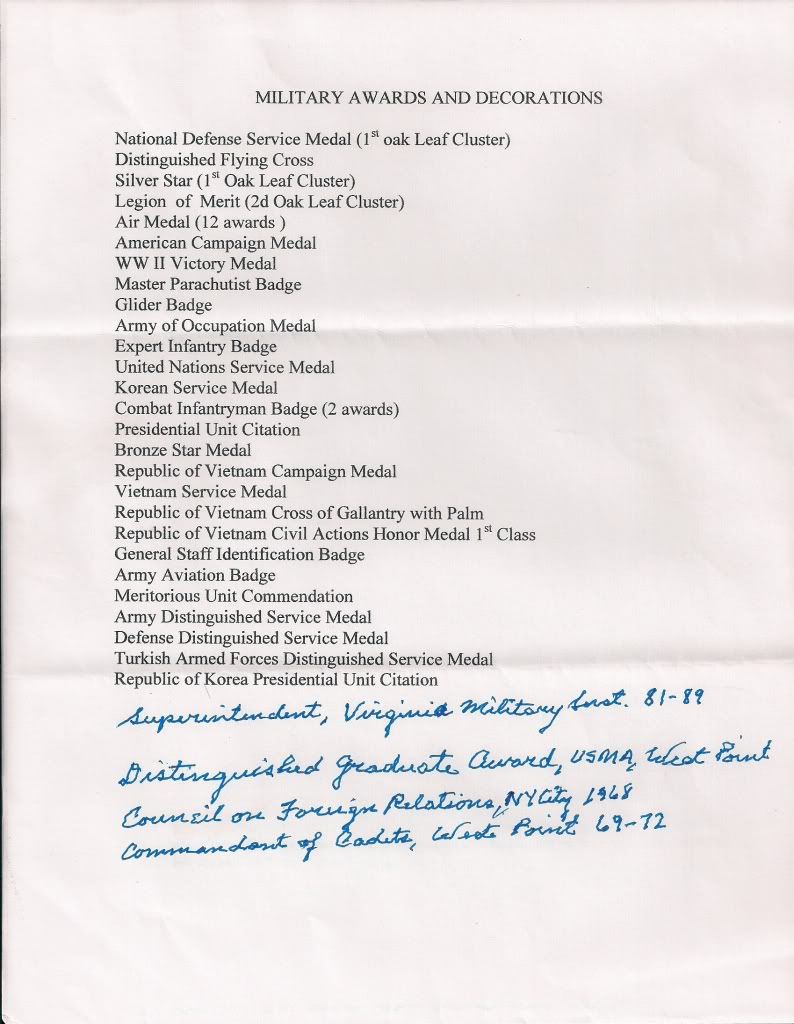 MILITARY AWARDS AND DECORATIONS
National Defense Service Medal (1st oak Leaf Cluster)
Distinguished Flying Cross
Silver Star (1st Oak Leaf Cluster)
Legion of Merit (2d Oak Leaf Cluster)
Air Medal (12 awards )
American Campaign Medal
WW II Victory Medal
Master Parachutist Badge
Glider Badge
Army of Occupation Medal
Expert Infantry Badge
United Nations Service Medal
Korean Service Medal
Combat Infantryman Badge (2 awards)
Presidential Unit Citation
Bronze Star Medal
Republic of Vietnam Campaign Medal
Vietnam Service Medal
Republic of Vietnam Cross of Gallantry with Palm
Republic of Vietnam Civil Actions Honor Medal 1st Class
General Staff Identification Badge
Army Aviation Badge
Meritorious Unit Commendation
Army Distinguished Service Medal
Defense Distinguished Service Medal
Turkish Armed Forces Distinguished Service Medal
Republic of Korea Presidential Unit Citation
Superintendent, Virginia Military Inst. 81-89
Distinguished Graduate Award, USMA, West Point
Council on Foreign Relations, NY City 1968
Commandant of Cadets, West Point 69-72